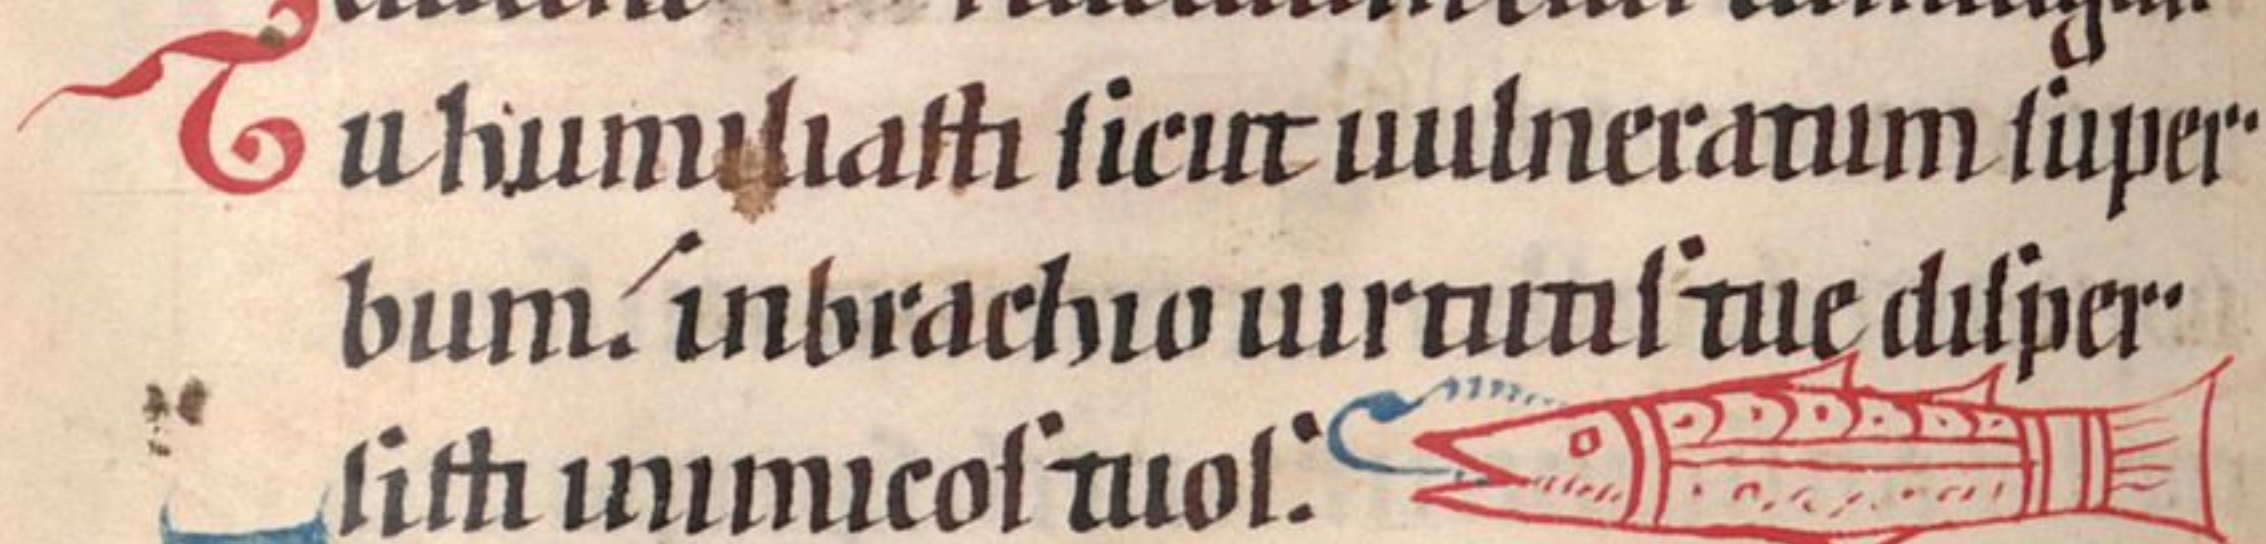 Tu humiliasti sicut uulneratum super·
bum. inbrachio uirtutis tue disper·
sisti inimicos tuos.